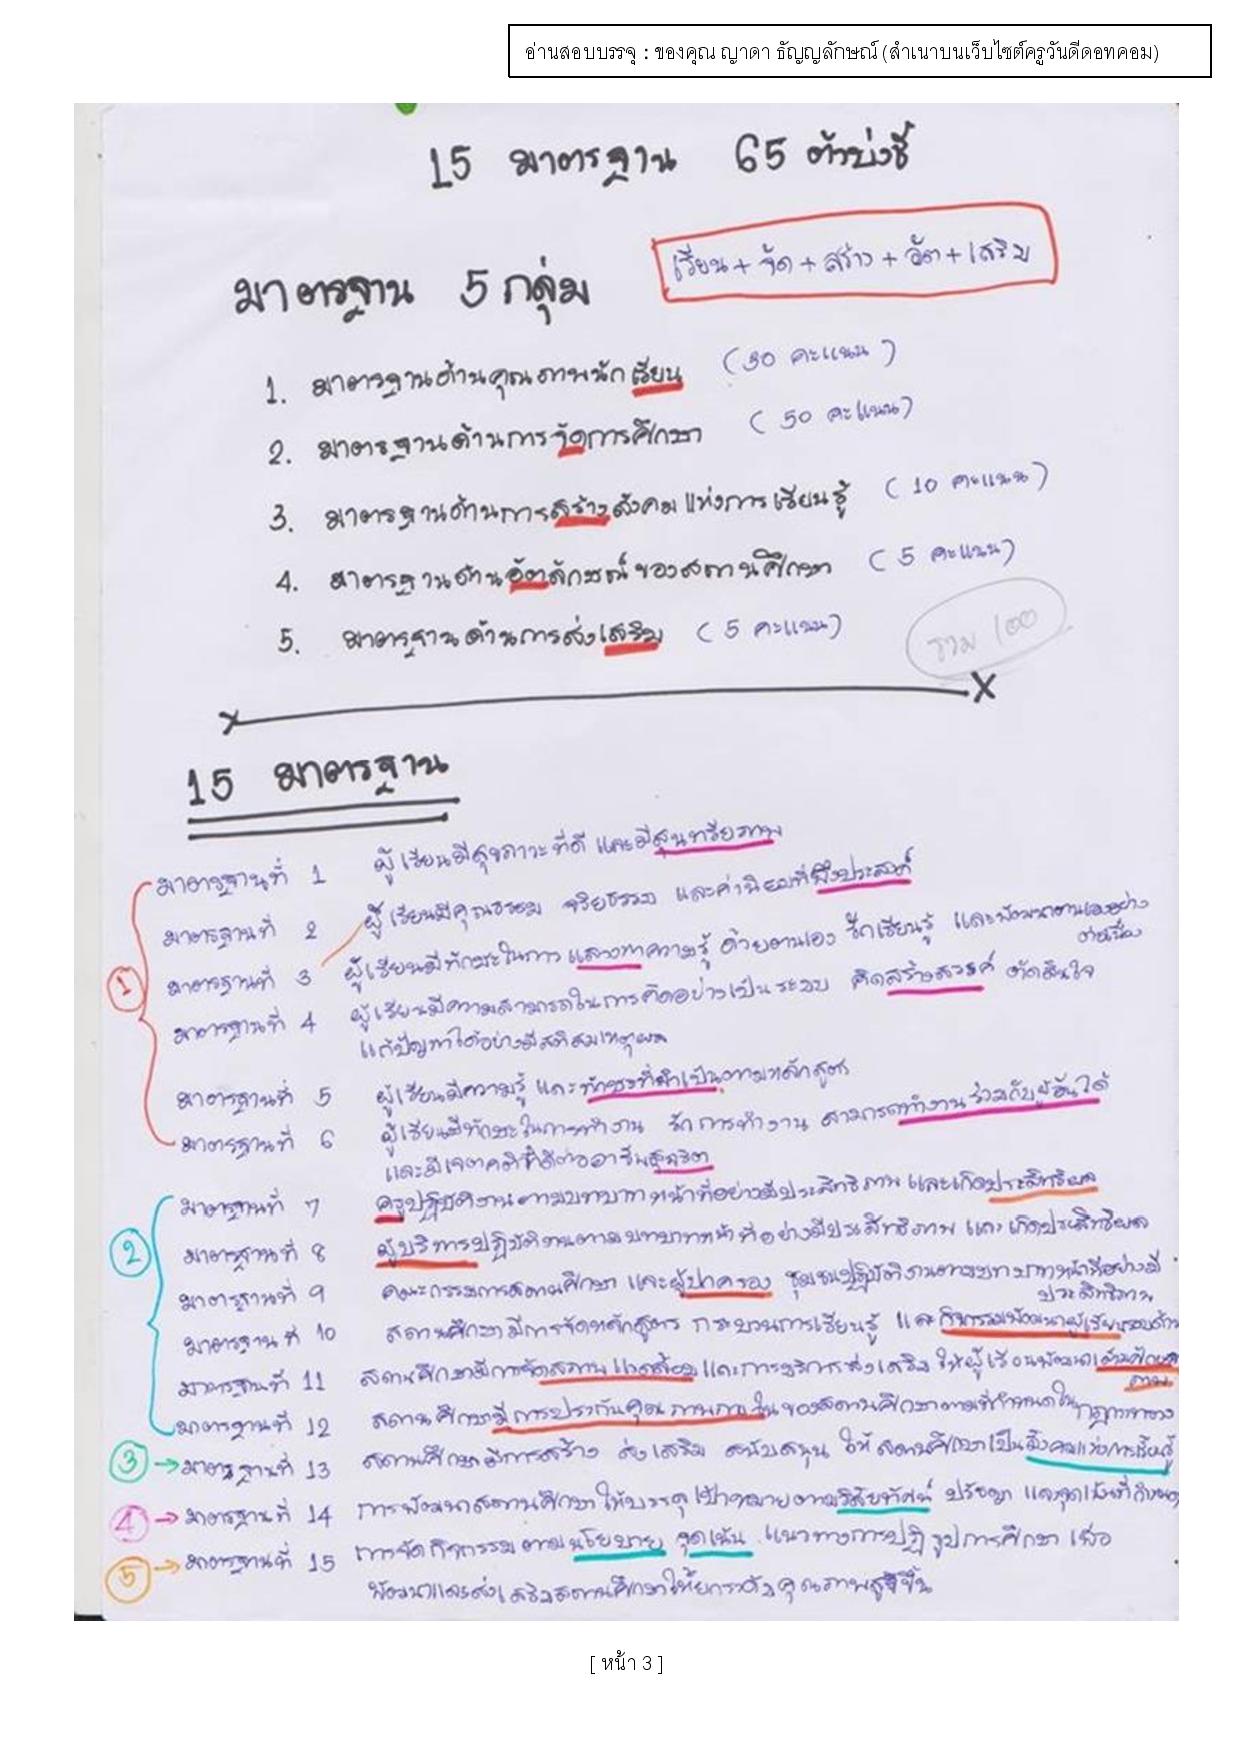 อ่านสอบบรรจุ : ของคุณ ญาดา ธัญญลักษณ์ (สำเนาบนเว็บไซต์ครูวันดีดอทคอม)
15 มาตรฐาน 65 ตัวบ่งชี้
เรียน + จัด + สร้าง + อัต + เสริม
มาตรฐาน 5 กลุ่ม
1. มาตรฐานด้านคุณภาพนักเรียน (30 คะแนน)
2. มาตรฐานด้านการจัดการศึกษา (50 คะแนน)
3. มาตรฐานด้านการสร้างสังคมแห่งการเรียนรู้ (10 คะแนน)
4. มาตรฐานด้านอัตลักษณ์ของสถานศึกษา (5 คะแนน)
5. มาตรฐานด้านการส่งเสริม (5 คะแนน)
รวม 100
15 มาตรฐาน
1
มาตรฐานที่ 1 ผู้เรียนมีสุขภาวะที่ดี และมีสุนทรียภาพ
มาตรฐานที่ 2 ผู้เรียนมีคุณธรรม จริยธรรม และค่านิยมที่พึงประสงค์
มาตรฐานที่ 3 ผู้เรียนมีทักษะในการแสวงหาความรู้ ด้วยตนเอง รักเรียนรู้ และพัฒนาตนเองอย่าง
ต่อเนื่อง
มาตรฐานที่ 4 ผู้เรียนมีความสามารถในการคิดอย่างเป็นระบบ คิดสร้างสรรค์ ตัดสินใจ
แก้ปัญหาได้อย่างมีสติสมเหตุผล
มาตรฐานที่ 5 ผู้เรียนมีความรู้ และทักษะที่จำเป็นตามหลักสูตร
มาตรฐานที่ 6 ผู้เรียนมีทักษะในการทำงาน รักการทำงาน สามารถทำงานร่วมกับผู้อื่นได้
และมีเจตคติที่ดีต่ออาชีพสุจริต
2
มาตรฐานที่ 7 ครูปฏิบัติงานตามบทบาทหน้าที่อย่างมีประสิทธิภาพ และเกิดประสิทธิผล
มาตรฐานที่ 8 ผู้บริหารปฏิบัติงานตามบทบาทหน้าที่อย่างมีประสิทธิภาพ และเกิดประสิทธิผล
มาตรฐานที่ 9 คณะกรรมการสถานศึกษา และผู้ปกครอง ชุมชนปฏิบัติงานตามบทบาทหน้าที่อย่างมี
ประสิทธิภาพ
มาตรฐานที่ 10 สถานศึกษามีการจัดหลักสูตร กระบวนการเรียนรู้ และกิจกรรมพัฒนาผู้เรียนรอบด้าน
มาตรฐานที่ 11 สถานศึกษามีการจัดสภาพแวดล้อมและการบริการส่งเสริมให้ผู้เรียนพัฒนาเต็มศักย
ภาพ
มาตรฐานที่ 12 สถานศึกษามีการประกันคุณภาพภายในของสถานศึกษาตามที่กำหนดในกฎกระทรวง
3 → มาตรฐานที่ 13 สถานศึกษามีการสร้าง ส่งเสริม สนับสนุน ให้สถานศึกษาเป็นสังคมแห่งการเรียนรู้
4 → มาตรฐานที่ 14 การพัฒนาสถานศึกษาให้บรรลุเป้าหมายตามวิสัยทัศน์ ปรัชญา และจุดเน้นที่กำหนด
5 → มาตรฐานที่ 15 การจัดกิจกรรมตามนโยบาย จุดเน้น แนวทางการปฏิรูปการศึกษา เพื่อ
พัฒนาและส่งเสริมสถานศึกษาให้ยกระดับคุณภาพสูงขึ้น
[ หน้า 3 ]